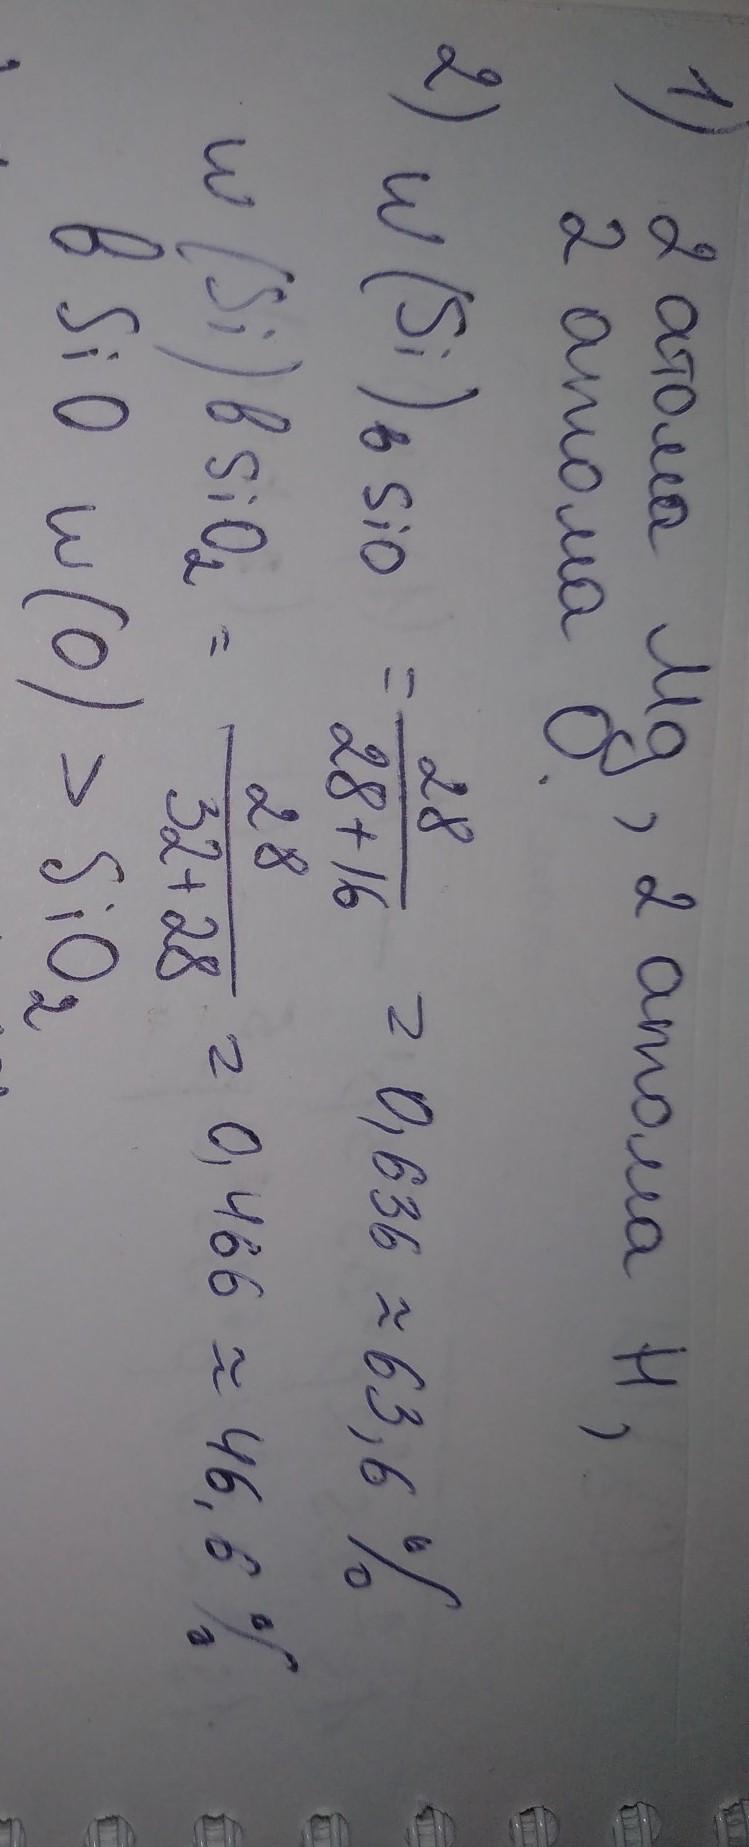 1) 2 атома Mg, 2 атома H,
2 атома O.
2) w (Si) в SiO = 28 / 28+16 = 0,636 ≈ 63,6 %
w (Si) в SiO₂ = 28 / 32+28 = 0,466 ≈ 46,6 %
в SiO w(O) > SiO₂